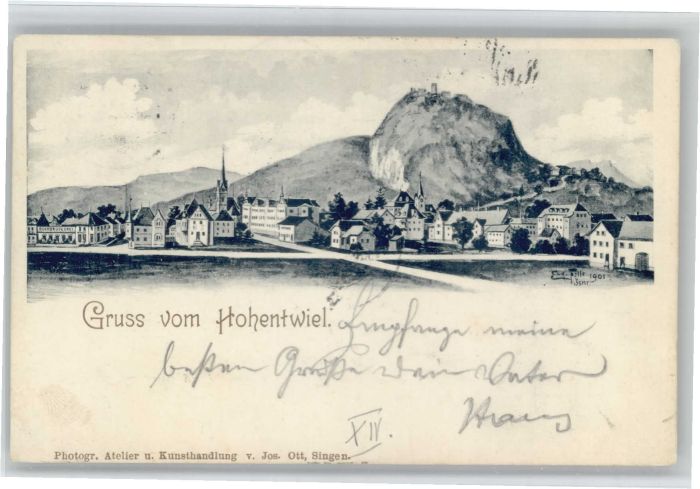 Gruss vom Hohentwiel. Empfange meine
besten Grüße dein Vater
XIV.
1901
Photogr. Atelier u. Kunsthandlung v. Jos. Ott, Singen.